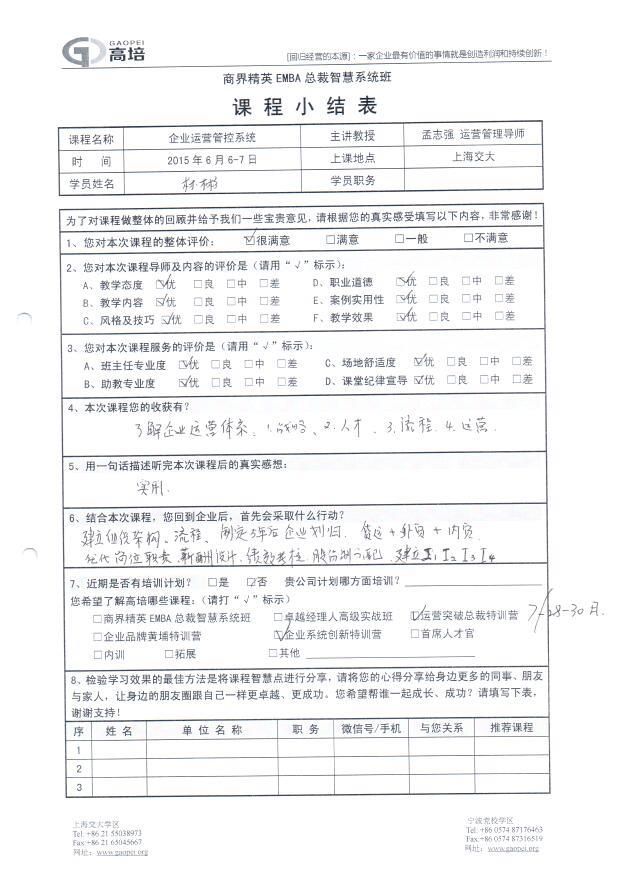 GAOPEI
高培
[回归经营的本源]：一家企业最有价值的事情就是创造利润和持续创新！
商界精英 EMBA 总裁智慧系统班
课 程 小 结 表
课程名称 企业运营管控系统 主讲教授 孟志强 运营管理导师
时 间 2015 年 6 月 6-7 日 上课地点 上海交大
学员姓名 林彬 学员职务
为了对课程做整体的回顾并给予我们一些宝贵意见，请根据您的真实感受填写以下内容，非常感谢！
1、您对本次课程的整体评价： ☑很满意 □满意 □一般 □不满意
2、您对本次课程导师及内容的评价是（请用“√”标示）：
A、教学态度 ☑优 □良 □中 □差 D、职业道德 ☑优 □良 □中 □差
B、教学内容 ☑优 □良 □中 □差 E、案例实用性 ☑优 □良 □中 □差
C、风格及技巧 ☑优 □良 □中 □差 F、教学效果 ☑优 □良 □中 □差
3、您对本次课程服务的评价是（请用“√”标示）：
A、班主任专业度 ☑优 □良 □中 □差 C、场地舒适度 ☑优 □良 □中 □差
B、助教专业度 ☑优 □良 □中 □差 D、课堂纪律宣导 ☑优 □良 □中 □差
4、本次课程您的收获有？
了解企业运营体系：1.战略、2.人才、3.流程.4.运营.
5、用一句话描述听完本次课程后的真实感想：
实用.
6、结合本次课程，您回到企业后，首先会采取什么行动？
建立组织架构、流程、制定5年后企业规划. 货运+外贸+内贸
岗位职责 薪酬设计.绩效考核.股份制分配.建立I1 I2 I3 I4
7、近期是否有培训计划？ □是 ☑否 贵公司计划哪方面培训？
您希望了解高培哪些课程：（请打“√”标示）
□商界精英 EMBA 总裁智慧系统班 □卓越经理人高级实战班 ☑运营突破总裁特训营 7/28-30日.
□企业品牌黄埔特训营 ☑企业系统创新特训营 □首席人才官
□内训 □拓展 □其他
8、检验学习效果的最佳方法是将课程智慧点进行分享，请将您的心得分享给身边更多的同事、朋友
与家人，让身边的朋友圈跟自己一样更卓越、更成功。您希望帮谁一起成长、成功？请填写下表，
谢谢支持！
序 姓 名 单 位 名 称 职 务 微信号/手机 与您关系 推荐课程
1
2
3
上海交大学区 宁波党校学区
Tel: +86 21 55038973 Tel: +86 0574 87176463
Fax:+86 21 65045667 Fax:+86 0574 87316519
网址：www.gaopei.org 网址：www.gaopei.org